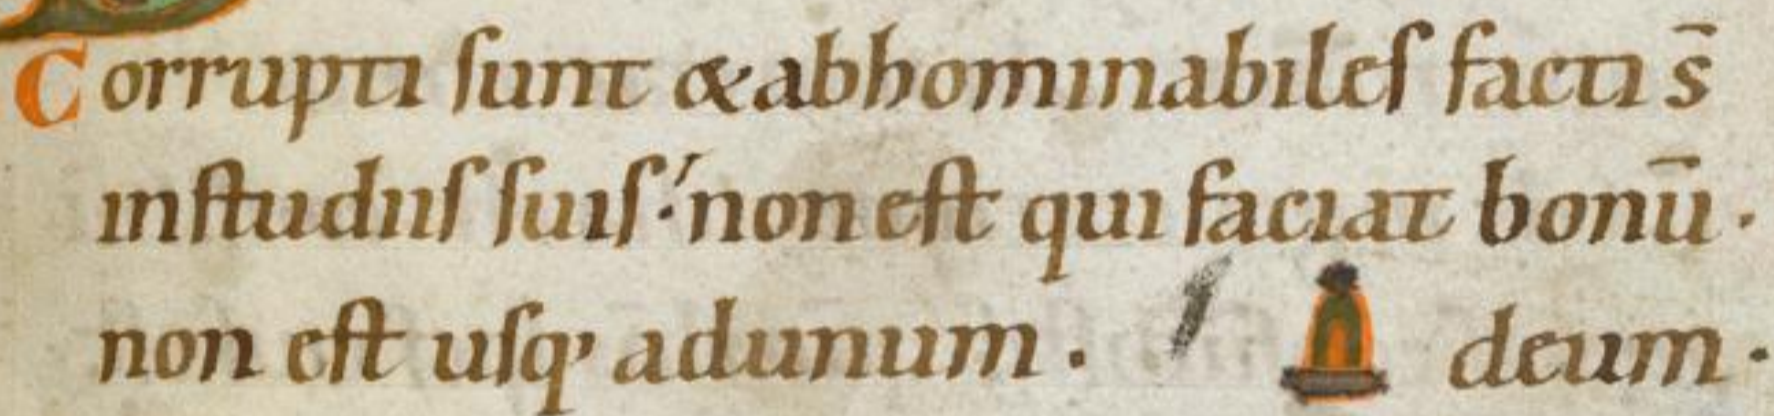 Corrupti sunt & abhominabiles facti s̄
in studiis suis⁏ non est qui faciat bonū.
non est usq; ad unum. deum.